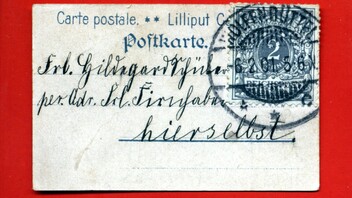 Carte postale. ** Lilliput C
Postkarte.
WOLFENBÜTTEL
2
6.2.01. 5.6N.
Frl. Hildegard Schüler
per. Adr. Frl. Firnhaber
hierselbst.
* c